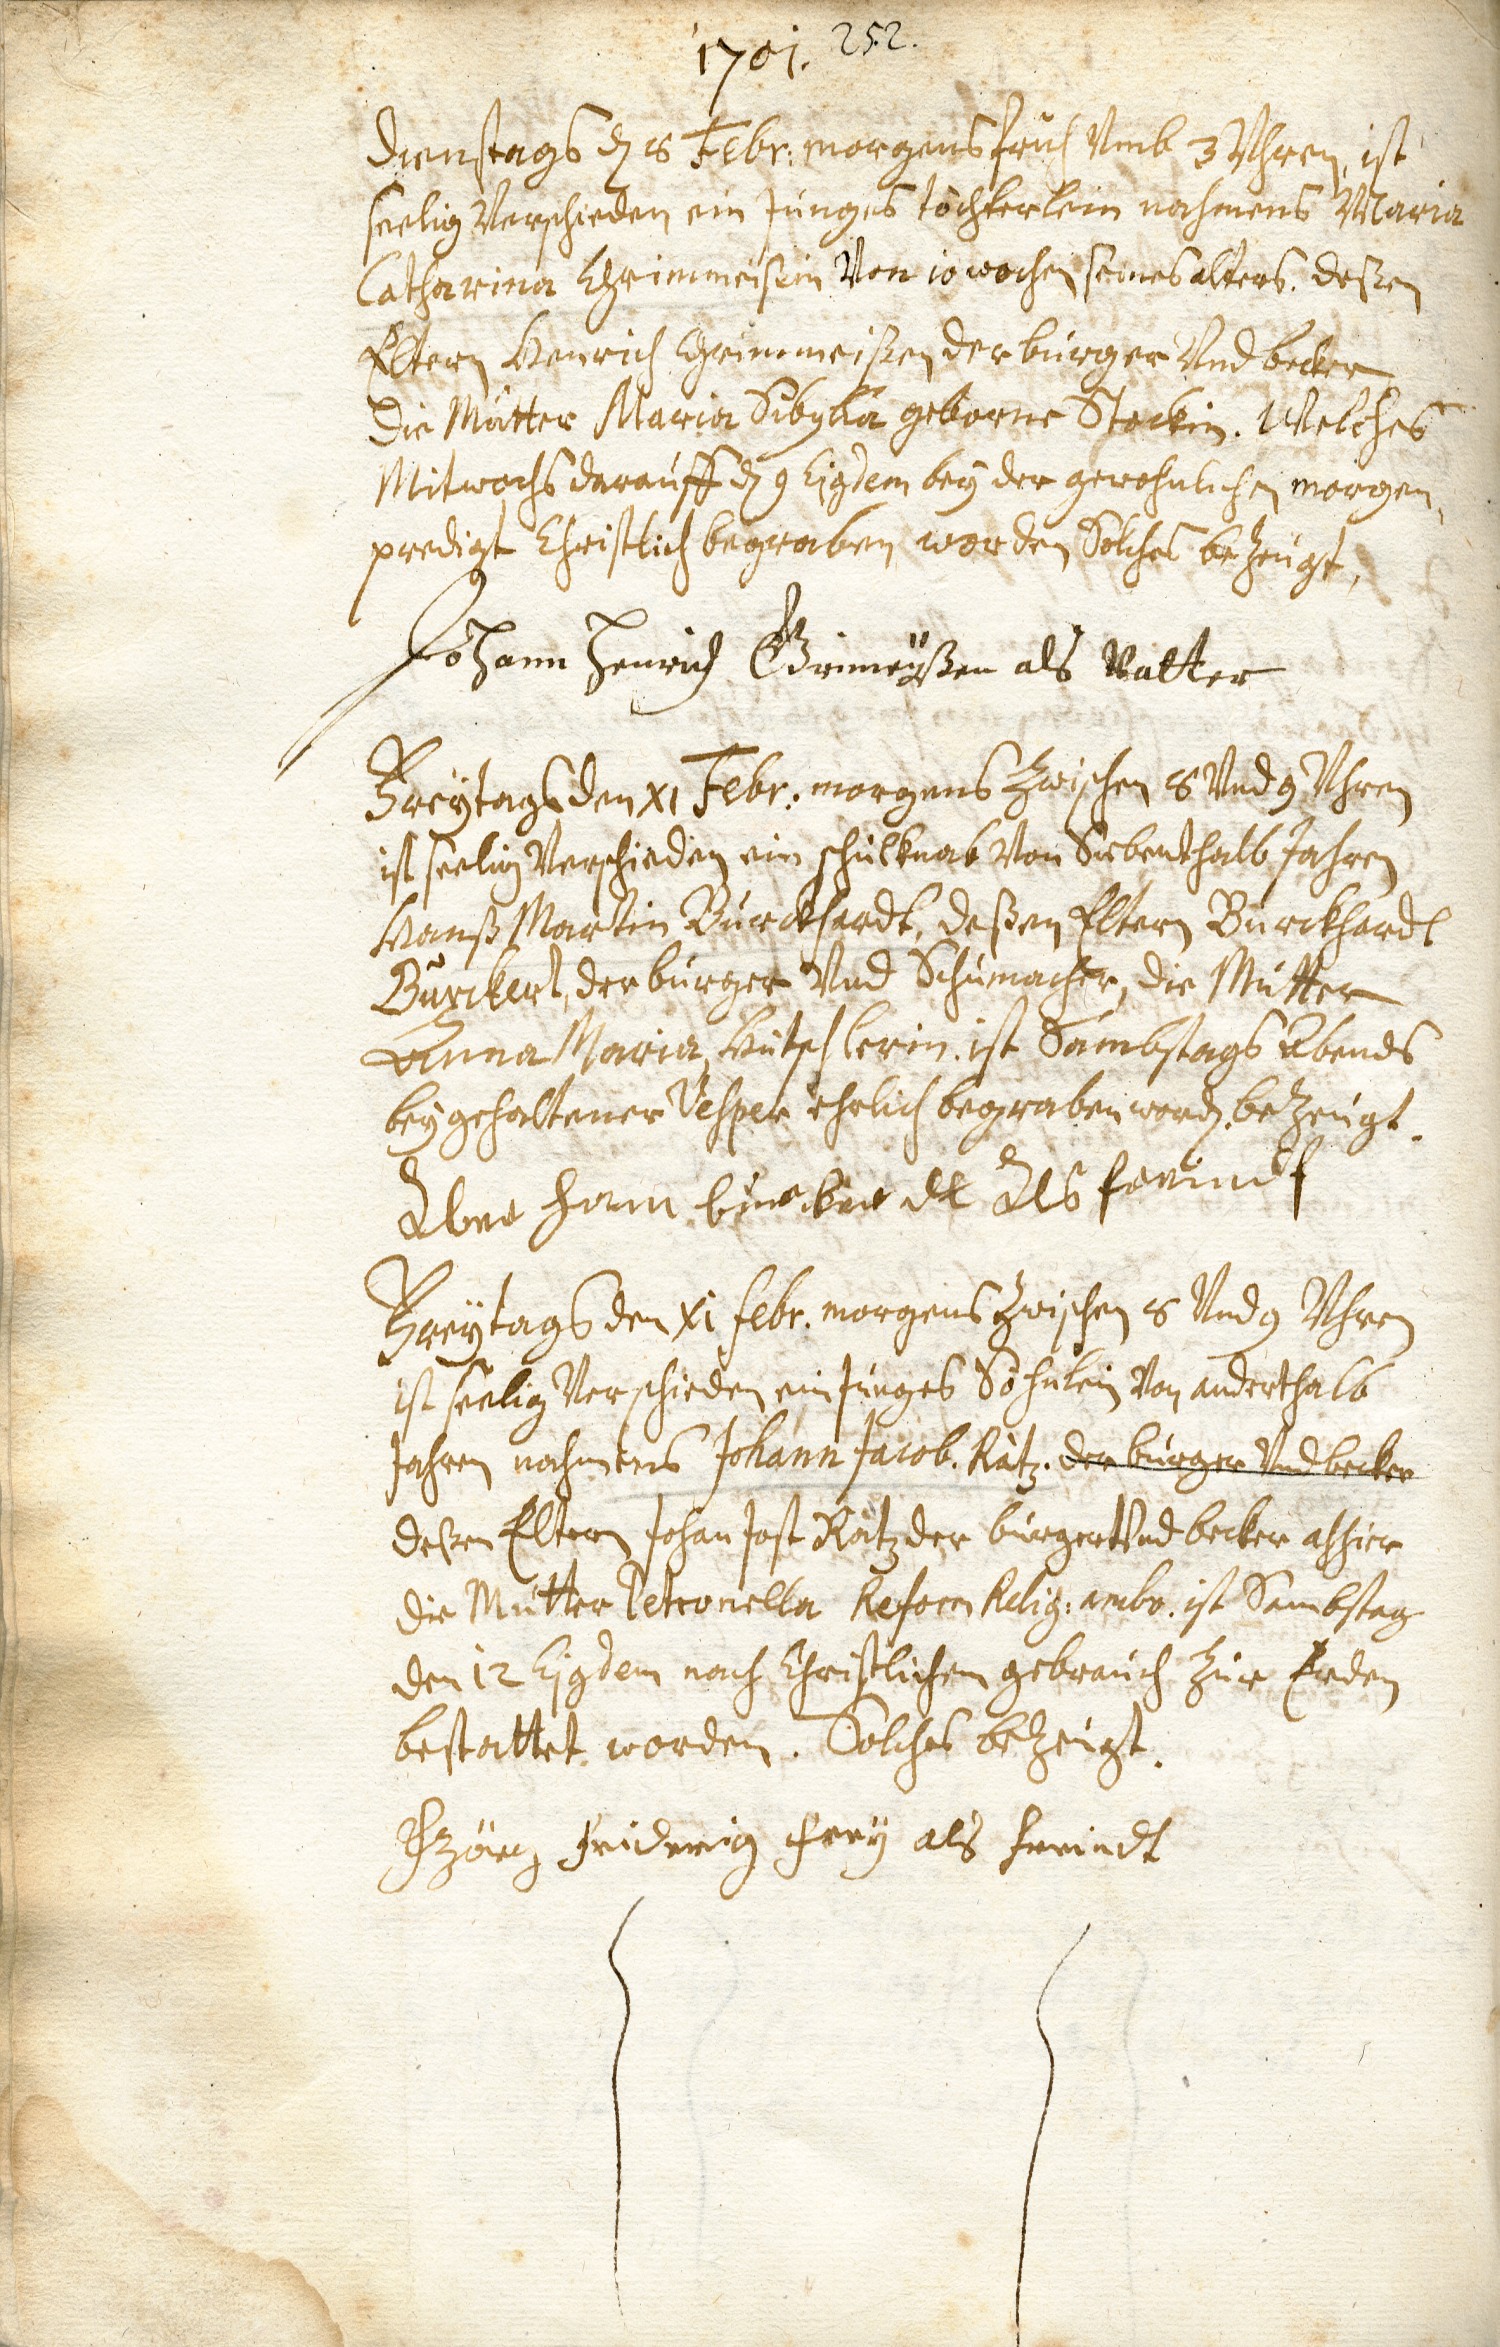 1701. 252.
Dienstags dz 8 Febr: morgens fruh Vmb 3 Uhren, ist
seelig Verschieden ein junges töchterlein nahmens Maria
Catharina Grimmeisin Von 10 wochen seines alters. deßen
Eltern Henrich Grimmeißen der burger Vnd becker
die Mutter Maria Sibylla geborne Steckin. Welches
Mitwochs darauff dz 9 Ejgdem bey der gewohnlichen morgen,
predigt Christlich begraben worden Solches bezeugt,
Johann Henrich Grimeyßen als Vatter
Freytags den XI Febr: morgens zwischen 8 Vnd 9 Uhren
ist seelig Verschieden ein schulknab Von Siebenthalb Jahren
Hanß Martin Burckhardt, deßen Eltern Burckhardt
Burckert, der burger Vnd Schumacher, die Mutter
Anna Maria, ist Sambstags Abends
bey gehaltener Vesper ehrlich begraben word. bezeugt.
Als freindt
Freytags den XI febr. morgens zwischen 8 Vnd 9 Uhren
ist seelig Verschieden ein junges Söhnlein Von anderthalb
Jahren nahmens Johann Jacob. Rätz. der burger Vnd becker
deßen Eltern Johan Jost Rätz der burger Vnd becker alhier
die Mutter Petronella Reform Relig: ambo. ist Sambstag
den 12 Ejgdem nach Christlichem gebrauch zur Erden
bestattet worden. Solches bezeugt.
Fridrig Frey als freindt